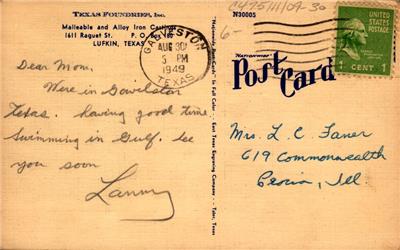 TEXAS FOUNDRIES, INC.
Malleable and Alloy Iron Castings
1611 Raguet St. P. O. Box
LUFKIN, TEXAS
GALVESTON
AUG 30
5 PM
1949
TEXAS
Dear Mom,
Were in Gavelston
Texas. having good time
Swimming in Gulf. See
you soon
Lanny
East Texas Engraving Company - Tyler, Texas
N30005
C475111109-30
"Nationwide"
Post Card
UNITED STATES
POSTAGE
1 CENT 1
Mrs. L. C. Faner
619 Commonwealth
Peoria, Ill.